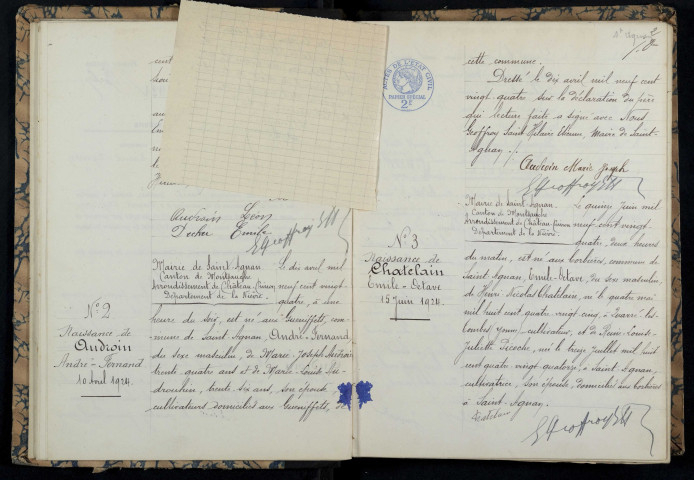 Audroin Léon
Decker Emile
EGeoffroyStH
Nº 2
Naissance de
Audroin
André-Fernand
10 Avril 1924.
Mairie de Saint-Agnan
Canton de Montsauche
Arrondissement de Château-Chinon
Département de la Nièvre
Le dix avril mil
neuf cent vingt-
quatre, à une
heure du soir, est né aux Gueniffets, com-
mune de Saint-Agnan, André-Fernand,
du sexe masculin, de Marie Joseph Audroin
trente quatre ans et de Marie-Louise
trente six ans, son épouse,
cultivateurs domiciliés aux Gueniffets, de
ACTES DE L'ETAT CIVIL
PAPIER SPECIAL
2F
St Agnan
cette commune.
Dressé le dix avril mil neuf cent
vingt quatre sur la déclaration du père
qui lecture faite a signé avec Nous
Geoffroy Saint-Hilaire Etienne, Maire de Saint-
Agnan ./.
Audroin Marie Joseph
EGeoffroyStH
Nº 3
Naissance de
Chatelain
Emile-Octave
15 Juin 1924.
Mairie de Saint-Agnan
Canton de Montsauche
Arrondissement de Château-Chinon
Département de la Nièvre
Le quinze juin mil
neuf cent vingt-
quatre, deux heures
du matin, est né aux Corbières, commune de
Saint Agnan, Emile-Octave, du sexe masculin
de Henri Nicolas Chatelain, né le quatre mai
mil huit cent quatre vingt cinq, à
cultivateur, et de Louise-
Juliette née le treize Juillet mil huit
cent quatre-vingt-quatorze, à Saint-Agnan,
cultivatrice, son épouse domiciliés aux Corbières
à Saint-Agnan.
EGeoffroyStH